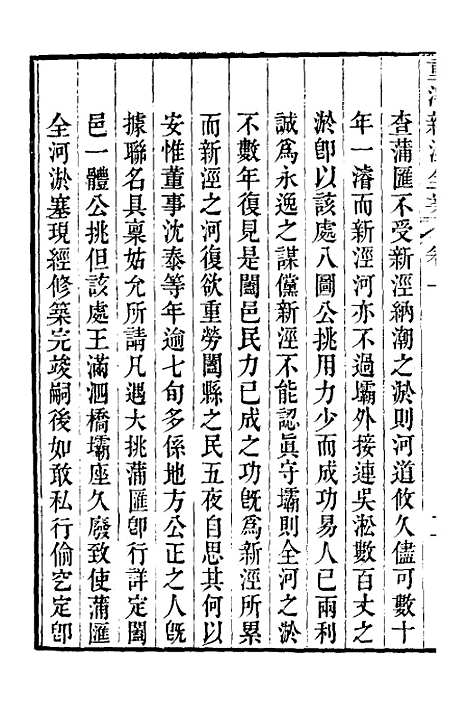 查蒲匯不受新涇納潮之淤則河道攸久儘可數十
年一濬而新涇河亦不過壩外接連吳淞數百丈之
淤卽以該處八圖公挑用力少而成功易人已兩利
誠爲永逸之謀儻新涇不能認眞守壩則全河之淤
不數年復見是闔邑民力已成之功旣爲新涇所累
而新涇之河復欲重勞闔縣之民五夜自思其何以
安惟董事沈泰等年逾七旬多係地方公正之人旣
據聯名具稟姑允所請凡遇大挑蒲匯卽行詳定闔
邑一體公挑但該處王滿泗橋壩座久廢致使蒲匯
全河淤塞現經修築完竣嗣後如敢私行偷空定卽